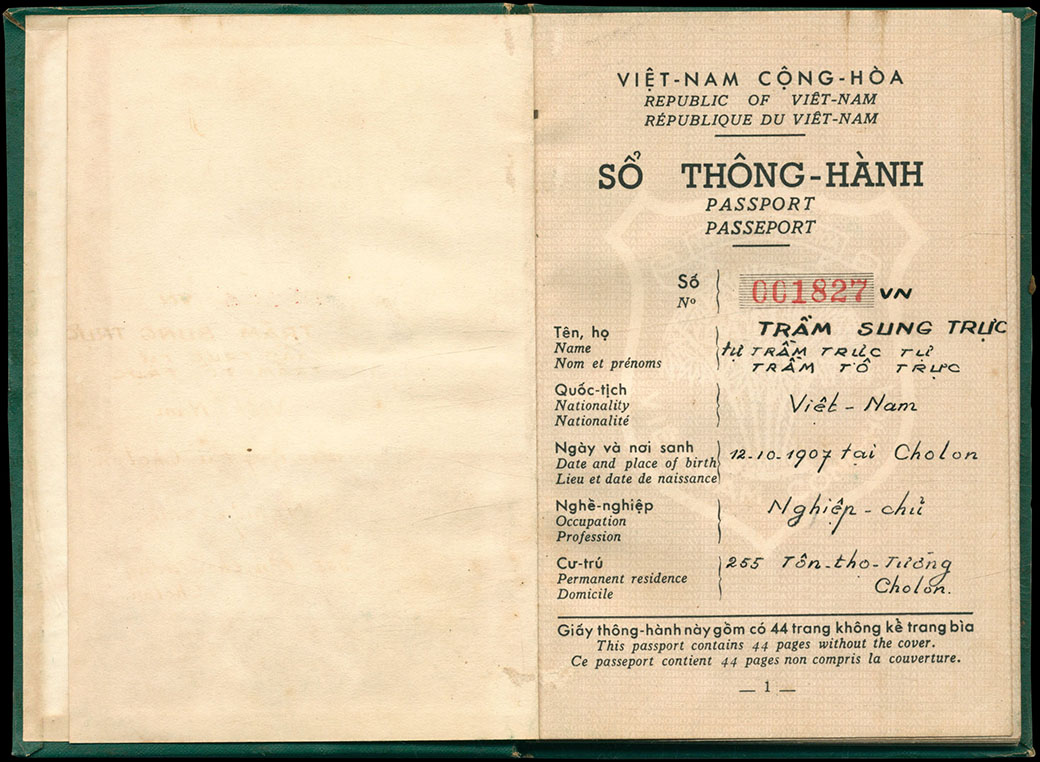 VIỆT-NAM CỘNG-HÒA
REPUBLIC OF VIÊT-NAM
RÉPUBLIQUE DU VIÊT-NAM
SỔ THÔNG-HÀNH
PASSPORT
PASSEPORT
Số
Nº
001827 VN
Tên, họ
Name
Nom et prénoms
TRẦM SUNG TRỰC
tự TRẦM TRỨC TỰ
TRẦM TÔ TRỰC
Quốc-tịch
Nationality
Nationalité
Việt-Nam
Ngày và nơi sanh
Date and place of birth
Lieu et date de naissance
12-10-1907 tại Cholon
Nghề-nghiệp
Occupation
Profession
Nghiệp-chủ
Cư-trú
Permanent residence
Domicile
255 Tôn-thọ-Tường
Cholon.
Giấy thông-hành này gồm có 44 trang không kể trang bìa
This passport contains 44 pages without the cover.
Ce passeport contient 44 pages non compris la couverture.
— 1 —